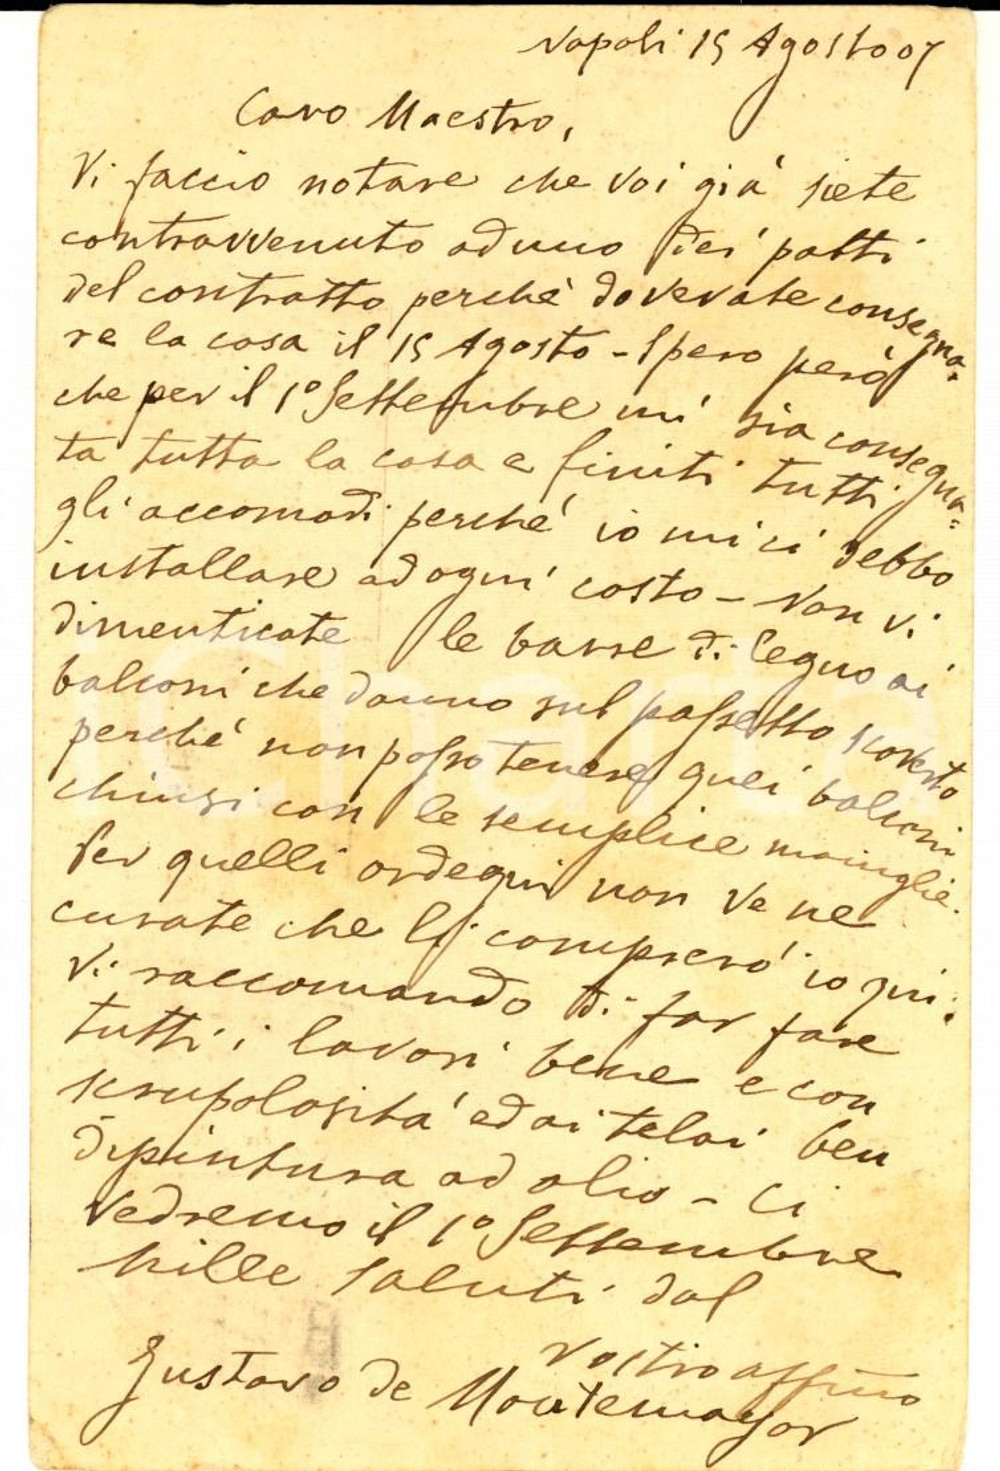 Napoli 15 Agosto 07
Caro Maestro,
Vi faccio notare che voi già siete
contravvenuto ad uno dei patti
del contratto perchè dovevate consegna-
re la casa il 15 Agosto - Spero però
che per il 1° Settembre mi sia consegna=
ta tutta la casa e finiti tutti
gli accomodi perchè io mi ci debbo
installare ad ogni costo - Non vi
dimenticate le barre di legno ai
balconi che danno sul passetto scoverto
perchè non posso tenere quei balconi
chiusi con le semplice maniglie.
Per quelli ordegni non ve ne
curate che li comprerò io qui.
Vi raccomando di far fare
tutti i lavori bene e con
scrupolosità ed ai telai ben
dipintura ad olio - Ci
vedremo il 1° Settembre
Mille saluti dal
Vostro affmo
Gustavo de Montemayor